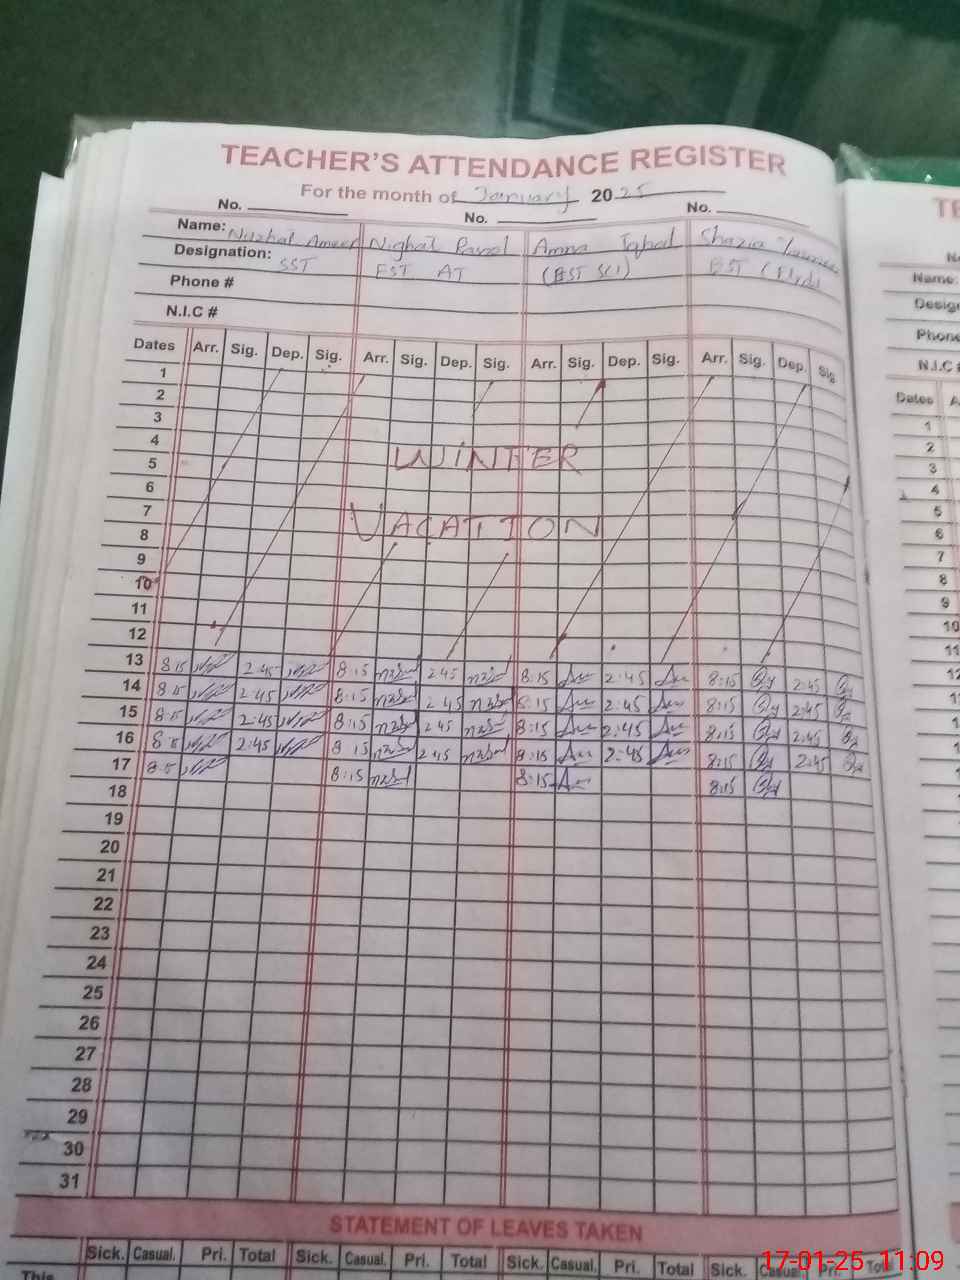 TEACHER'S ATTENDANCE REGISTER
For the month of January 2025
No. No. No.
Name: Nuzhat Ameer Nighat Parvol Amna Iqbal Shazia
Designation: SST EST AT (EST SCI) EST
Phone #
N.I.C #
Dates Arr. Sig. Dep. Sig. Arr. Sig. Dep. Sig. Arr. Sig. Dep. Sig. Arr. Sig. Dep. Sig.
1
2
3
4
5
WINTER
6
7
VACATION
8
9
10
11
12
13 8:15 2:45 8:15 2:45 8:15 2:45 8:15 2:45
14 8:15 2:45 8:15 2:45 8:15 2:45 8:15 2:45
15 8:15 2:45 8:15 2:45 8:15 2:45 8:15 2:45
16 8:15 2:45 8:15 2:45 8:15 2:45 8:15 2:45
17 8:15 8:15 8:15 8:15
18
19
20
21
22
23
24
25
26
27
28
29
30
31
STATEMENT OF LEAVES TAKEN
Sick. Casual. Pri. Total Sick. Casual. Pri. Total Sick. Casual. Pri. Total Sick. Casual. Pri. Total
This
TE
Name:
Design
Phone
N.I.C #
Dates A
1
2
3
4
5
6
7
8
9
10
11
12
17-01-25 11:09